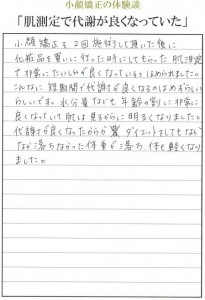 小顔矯正の体験談
「肌測定で代謝が良くなっていた」
小顔矯正を2回施術して頂いた後に
化粧品を買いに行った時にしてもらった肌測定
で非常にたいしゃが良くなっているとほめられました。
こんなに短期間で代謝が良くなるのはめずらしい
らしいです。水分量なども年齢の割に非常に
良くなっていて肌は見るからに明るくなりました。
代謝が良くなったからかダイエットをしてもなか
なか落ちなかった体重が落ち、体も軽くなり
ました。